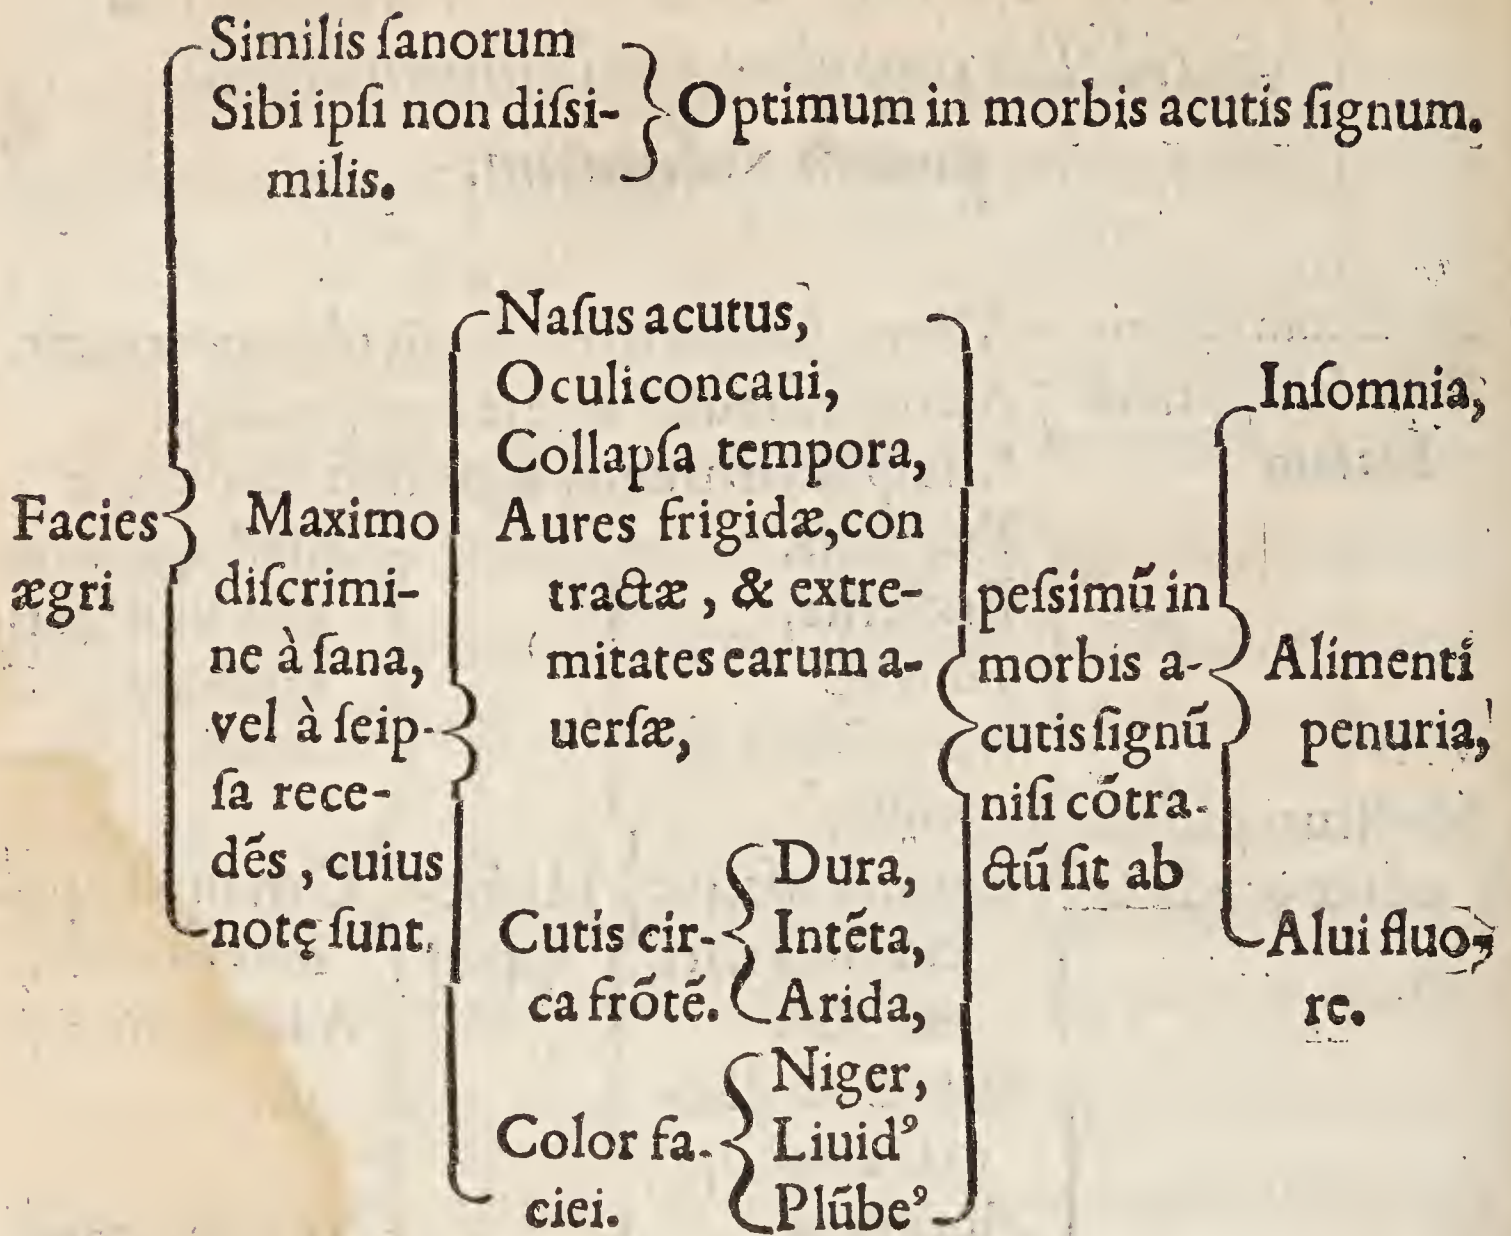 Similis ſanorum
Sibi ipſi non diſsi-
milis.
Optimum in morbis acutis ſignum.
Facies
ægri
Maximo
diſcrimi-
ne à ſana,
vel à ſeip-
ſa rece-
dẽs, cuius
notę ſunt.
Naſus acutus,
Oculi concaui,
Collapſa tempora,
Aures frigidæ, con
tractæ, & extre-
mitates earum a-
uerſæ,
Cutis cir-
ca frõtẽ.
Dura,
Intẽta,
Arida,
Color fa-
ciei.
Niger,
Liuidꝰ
Plũbeꝰ
peſsimũ in
morbis a-
cutis ſignũ
niſi cõtra-
ctũ ſit ab
Inſomnia,
Alimenti
penuria,
Alui fluo-
re.